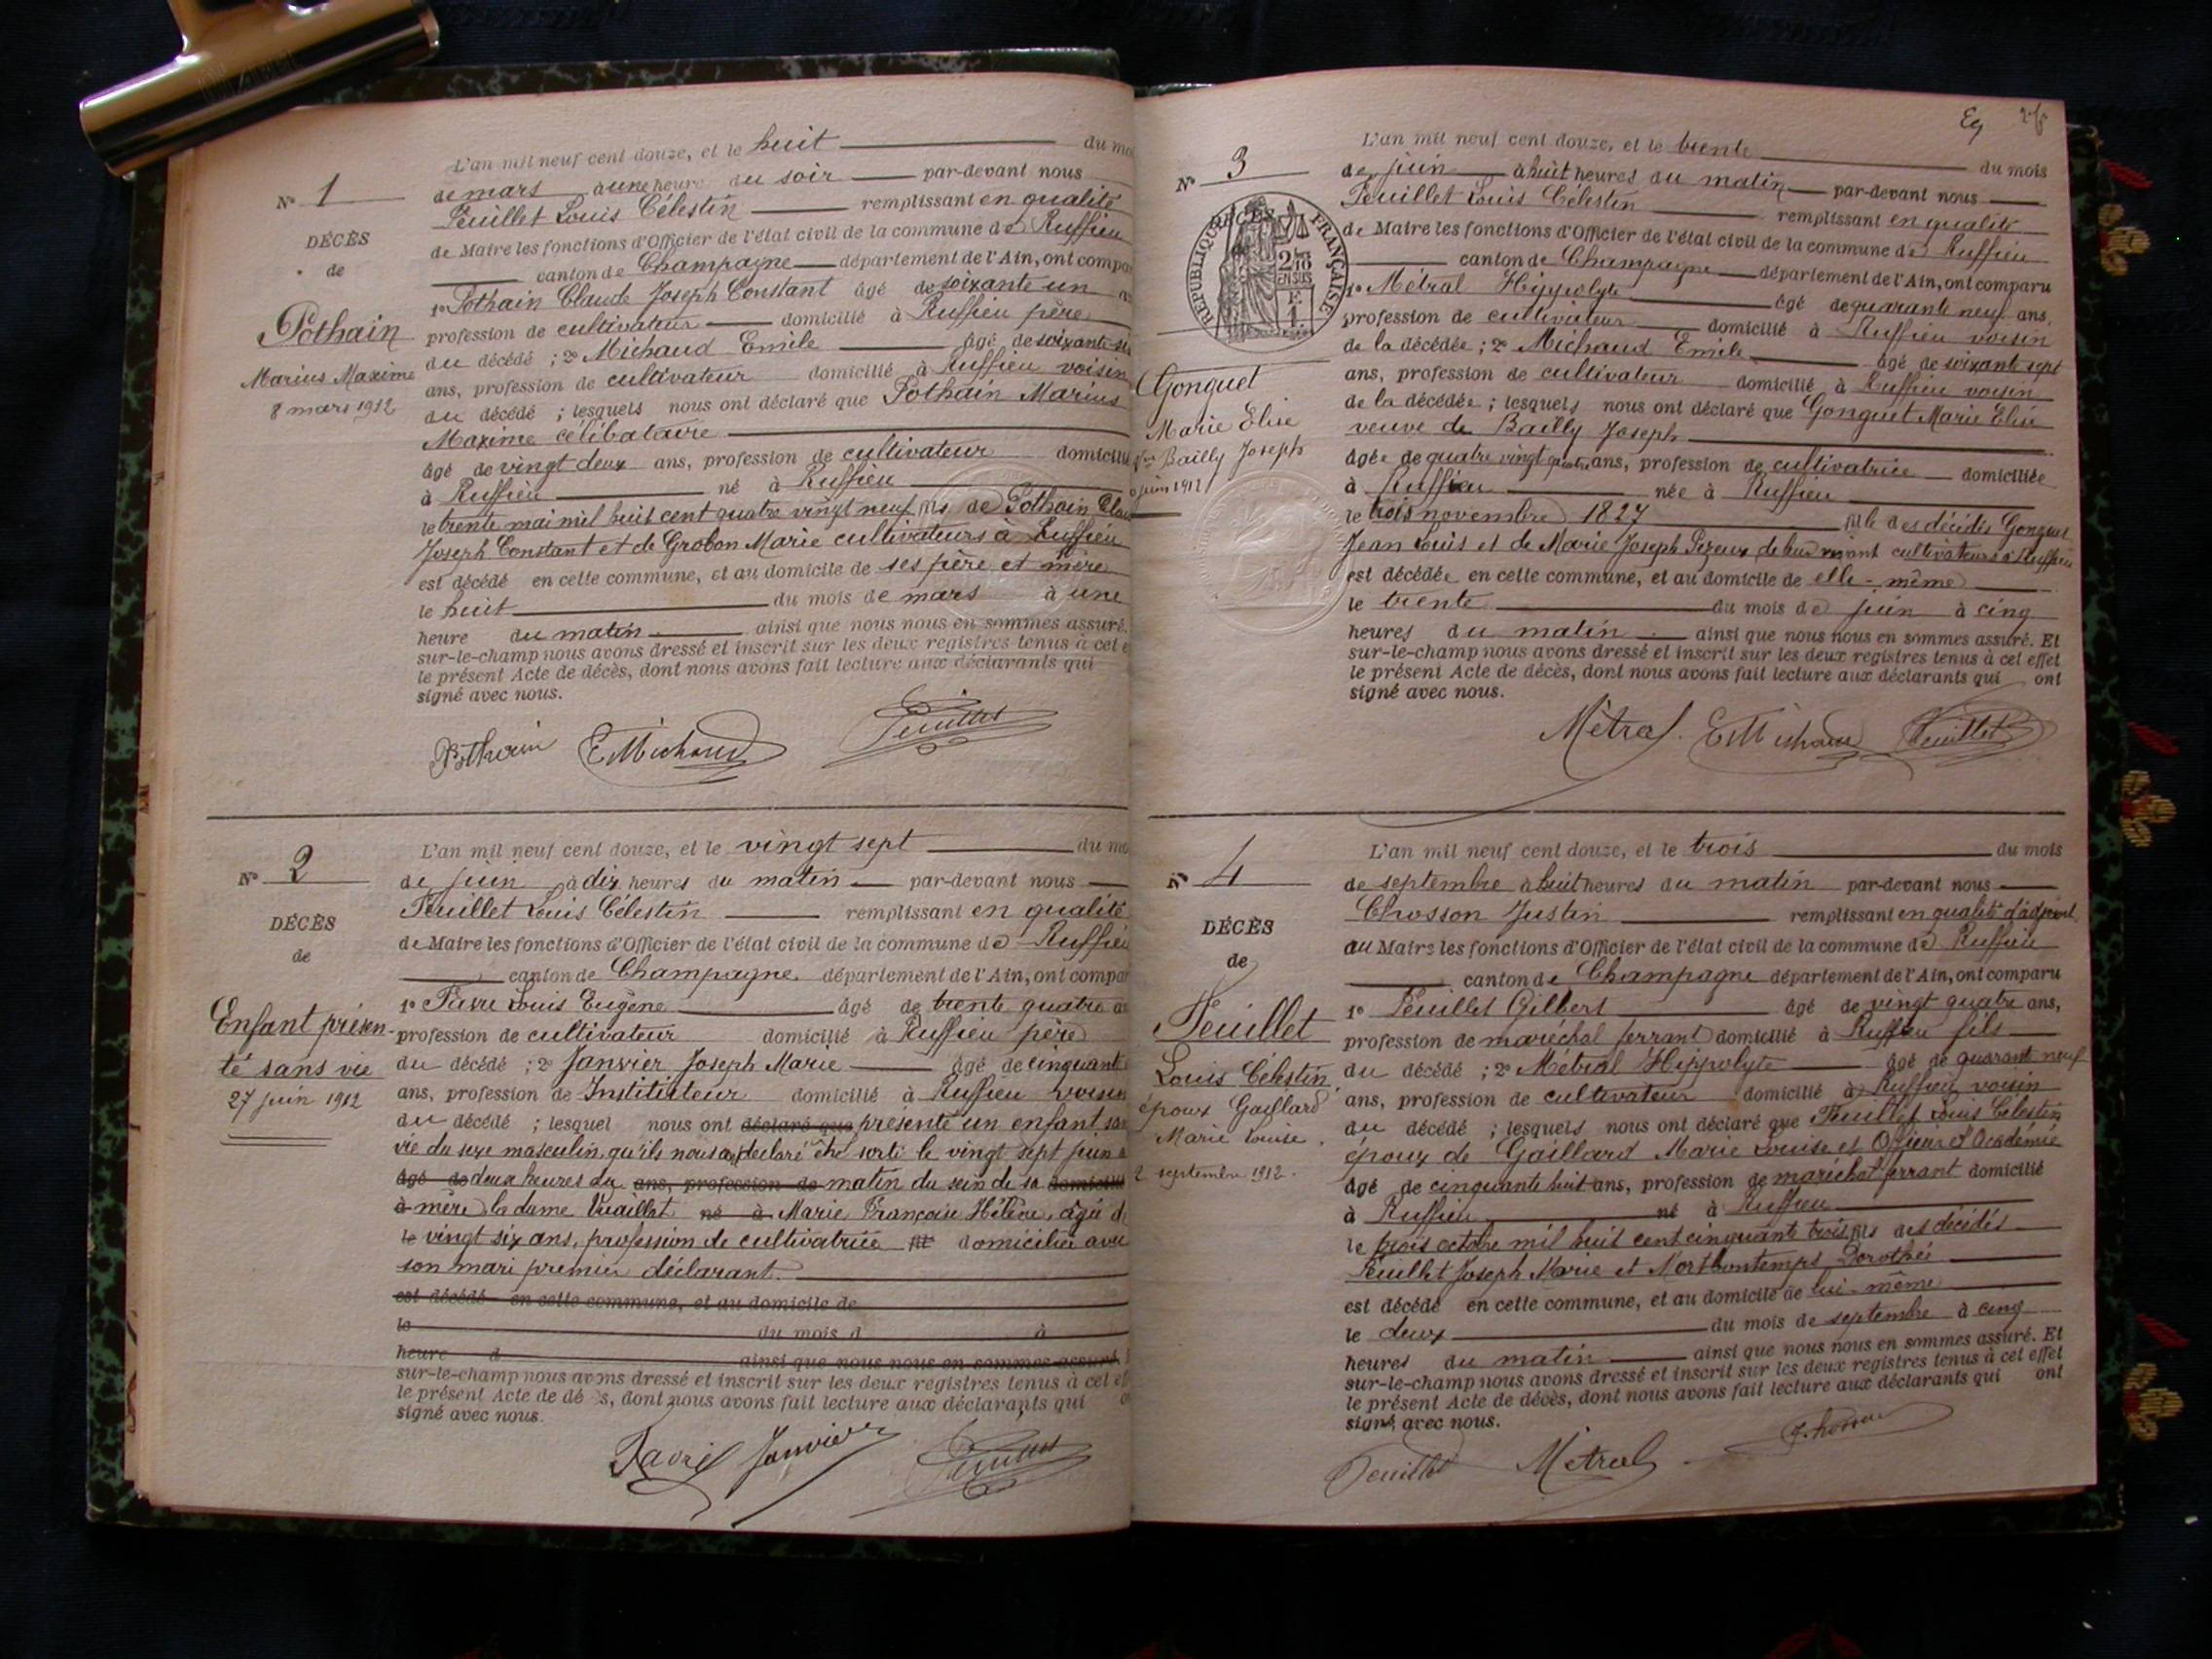 N° 1
DÉCÈS
de
Pothain
Marius Maxime
8 mars 1912
L'an mil neuf cent douze, et le huit du mo
de mars à une heure du soir par-devant nous
Feuillet Louis Célestin remplissant en qualité
de Maire les fonctions d'Officier de l'état civil de la commune de Ruffieu
canton de Champagne département de l'Ain, ont compa
1° Pothain Claude Joseph Constant âgé de soixante un a
profession de cultivateur domicilié à Ruffieu père
du décédé ; 2° Michaud Emile âgé de soixante-se
ans, profession de cultivateur domicilié à Ruffieu voisin
du décédé ; lesquels nous ont déclaré que Pothain Marius
Maxime célibataire
âgé de vingt deux ans, profession de cultivateur domicilié
à Ruffieu né à Ruffieu
le trente mai mil huit cent quatre vingt neuf fils de Pothain Clau
Joseph Constant et de Grobon Marie cultivateurs à Ruffieu
est décédé en cette commune, et au domicile de ses père et mère
le huit du mois de mars à une
heure du matin ainsi que nous nous en sommes assuré.
sur-le-champ nous avons dressé et inscrit sur les deux registres tenus à cet e
le présent Acte de décès, dont nous avons fait lecture aux déclarants qui
signé avec nous.
Pothain E Michaud Feuillet
N° 2
DÉCÈS
de
Enfant présen-
té sans vie
27 juin 1912
L'an mil neuf cent douze, et le vingt sept du mo
de juin à dix heures du matin par-devant nous
Feuillet Louis Célestin remplissant en qualité
de Maire les fonctions d'Officier de l'état civil de la commune de Ruffieu
canton de Champagne département de l'Ain, ont compa
1° Favre Louis Eugène âgé de trente quatre a
profession de cultivateur domicilié à Ruffieu père
du décédé ; 2° Janvier Joseph Marie âgé de cinquante
ans, profession de Instituteur domicilié à Ruffieu voisin
du décédé ; lesquel nous ont déclaré que présenté un enfant san
vie du sexe masculin, qu'ils nous déclaré être sorti le vingt sept juin à
âgé de deux heures du ans, profession de matin du sein de sa domicilié
à mère la dame Vuaillat né à Marie Françoise Hélène, âgée d
le vingt six ans, profession de cultivatrice fil domiciliée avec
son mari premier déclarant.
est décédé en cette commune, et au domicile de
le du mois d à
heure d ainsi que nous nous en sommes assuré
sur-le-champ nous avons dressé et inscrit sur les deux registres tenus à cet ef
le présent Acte de dé s, dont nous avons fait lecture aux déclarants qui
signé avec nous.
Favre Janvier Feuillet
Eg
N° 3
RÉPUBLIQUE FRANÇAISE
2/10
EN SUS
Gonguet
Marie Elise
Bailly Joseph
juin 1912
L'an mil neuf cent douze, et le trente du mois
de juin à huit heures du matin par-devant nous
Feuillet Louis Célestin remplissant en qualité
de Maire les fonctions d'Officier de l'état civil de la commune de Ruffieu
canton de Champagne département de l'Ain, ont comparu
1° Métral Hippolyte âgé de quarante neuf ans,
profession de cultivateur domicilié à Ruffieu voisin
de la décédée ; 2° Michaud Emile âgé de soixante sept
ans, profession de cultivateur domicilié à Ruffieu voisin
de la décédée ; lesquels nous ont déclaré que Gonguet Marie Elise
veuve de Bailly Joseph
âgée de quatre vingt quatre ans, profession de cultivatrice domiciliée
à Ruffieu née à Ruffieu
le trois novembre 1827 fille des décédés Gonguet
Jean Louis et de Marie Joseph de leur vivant cultivateurs à Ruffieu
est décédée en cette commune, et au domicile de elle-même
le trente du mois de juin à cinq
heures du matin ainsi que nous nous en sommes assuré. Et
sur-le-champ nous avons dressé et inscrit sur les deux registres tenus à cet effet
le présent Acte de décès, dont nous avons fait lecture aux déclarants qui ont
signé avec nous.
Métral. E Michaud Feuillet
N° 4
DÉCÈS
de
Feuillet
Louis Célestin
époux Gaillard
Marie Louise.
2 septembre 1912.
L'an mil neuf cent douze, et le trois du mois
de septembre à huit heures du matin par-devant nous
Chosson Justin remplissant en qualité d'adjoint
au Maire les fonctions d'Officier de l'état civil de la commune de Ruffieu
canton de Champagne département de l'Ain, ont comparu
1° Feuillet Gilbert âgé de vingt quatre ans,
profession de maréchal ferrant domicilié à Ruffieu fils
du décédé ; 2° Métral Hippolyte âgé de quarante neuf
ans, profession de cultivateur domicilié à Ruffieu voisin
du décédé ; lesquels nous ont déclaré que Feuillet Louis Célestin
époux de Gaillard Marie Louise et Officier d'Académie
âgé de cinquante huit ans, profession de maréchal ferrant domicilié
à Ruffieu né à Ruffieu
le trois octobre mil huit cent cinquante trois fils des décédés
Feuillet Joseph Marie et Dorothée
est décédé en cette commune, et au domicile de lui-même
le deux du mois de septembre à cinq
heures du matin ainsi que nous nous en sommes assuré. Et
sur-le-champ nous avons dressé et inscrit sur les deux registres tenus à cet effet
le présent Acte de décès, dont nous avons fait lecture aux déclarants qui ont
signé avec nous.
Feuillet Métral